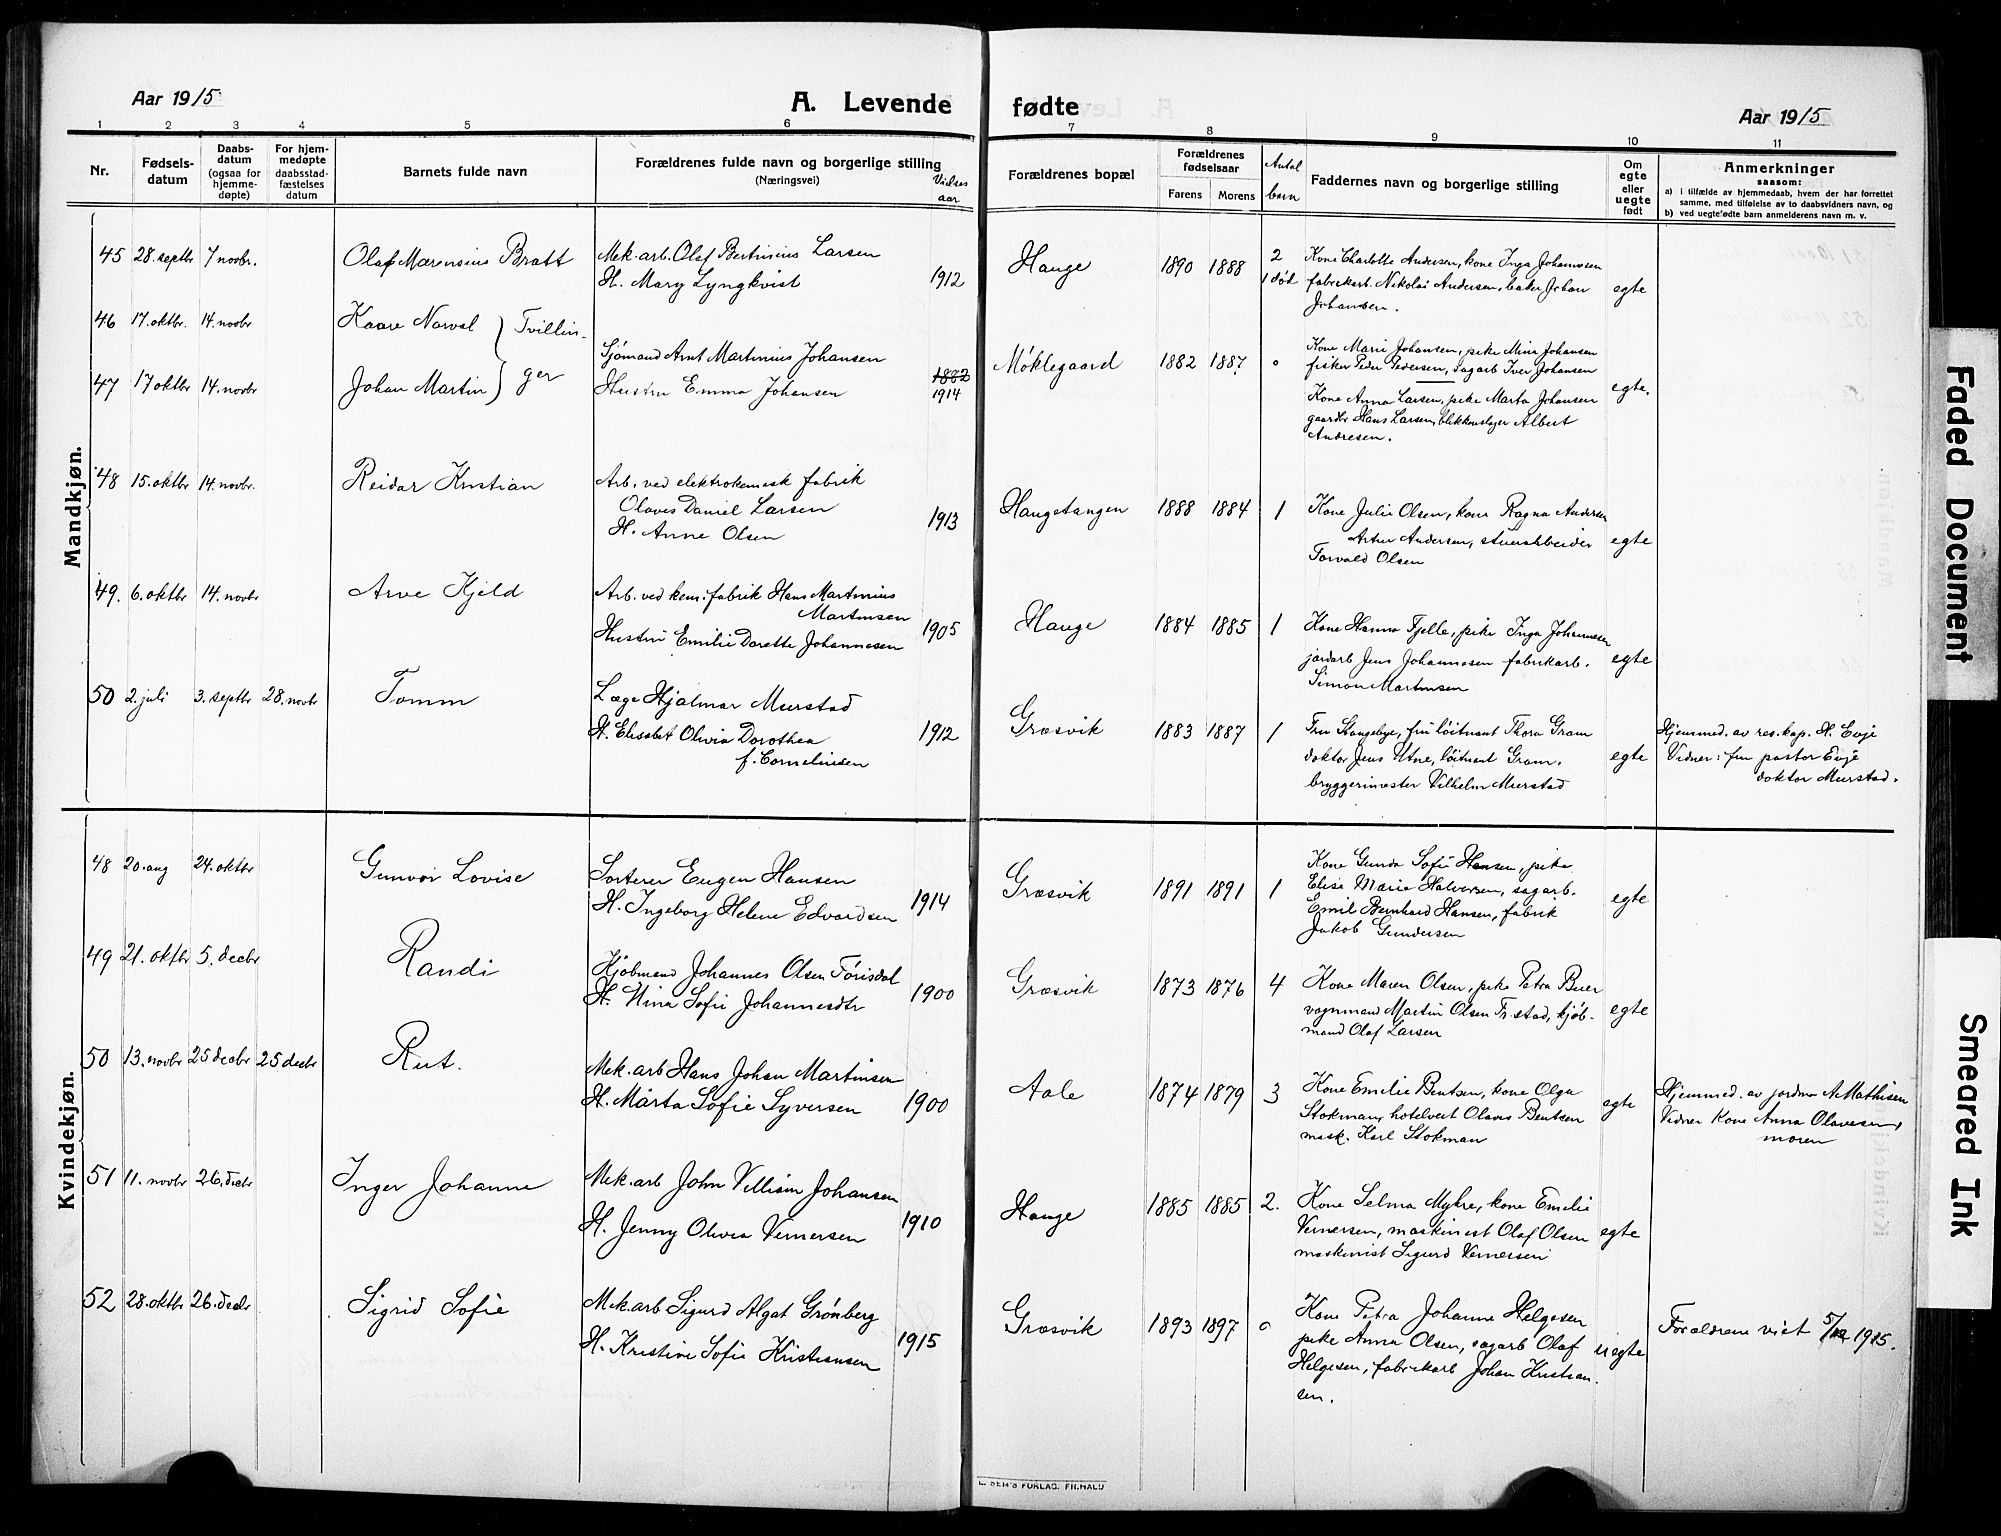 Aar 1915
A. Levende fødte
Aar 1915
1 2 3 4 5 6 7 8 9 10 11
Nr.
Fødsels-
datum
Daabs-
datum
(ogsaa for
hjemme-
døpte)
For hjem-
medøpte
daabsstad-
fæstelses
datum
Barnets fulde navn
Forældrenes fulde navn og borgerlige stilling
(Næringsvei)
Vielses
aar
Forældrenes bopæl
Forældrenes
fødselsaar
Farens Morens
Antal
barn
Faddernes navn og borgerlige stilling
Om
egte
eller
uegte
født
Anmerkninger
saasom:
a) i tilfælde av hjemmedaab, hvem der har forrettet
samme, med tilføielse av to daabsvidners navn, og
b) ved uegte fødte barn anmelderens navn m. v.
Mandkjøn.
45 28. septbr 7 novbr. Olaf Marensius Bratt
Mek. arb. Olaf Bertinius Larsen
H. Mary Lyngkvist 1912
Hauge 1890 1888 2
1 død
Kone Charlotte Andersen, kone Inga Johannesen
fabrikarb. Nikolai Andersen, baker Johan
Johansen.
egte
46 17. oktbr. 14. novbr Kaare Norval } Tvillin-
47 17 oktbr 14. novbr. Johan Martin } ger
Sjømand Arnt Martinius Johansen
Hustru Emma Johansen 1882
1914
Møklegaard 1882 1887 0
Kone Marie Johansen, pike Mina Johansen
fisker Peder Pedersen, sagarb Iver Johansen
Kone Anna Larsen, pike Marta Johansen
gaardbr Hans Larsen, blikkenslager Albert
Andresen.
egte.
48 15. oktbr 14. novbr. Reidar Kristian
Arb. ved elektrokemisk fabrik
Olaves Daniel Larsen
H. Anne Olsen 1913
Haugetangen 1888 1884 1
Kone Julie Olsen, kone Ragna Andersen
Artur Andersen, stuerarbeider
Torvald Olsen
egte
49. 6. oktbr 14. novbr Arve Kjeld
Arb. ved kem. fabrik Hans Martinius
Martinsen
Hustru Emilie Dorette Johannesen 1905
Hauge 1884 1885 1
Kone Hanna Fjelle, pike Inga Johannesen
jordarb Jens Johannesen fabrikarb.
Simon Martinsen
egte
50 2. juli 3. septbr 28. novbr Tomm
Læge Hjalmar Murstad
H. Elisabet Olivia Dorothea
f. Cornelinsen 1912
Græsvik 1883 1887 1
Fru Stangebye, fru løitnant Thora Gram
doktor Jens Utne, løitnant Gram.
bryggerimester Vilhelm Murstad
egte
Hjemmed. av res. kap. H. Evje
Vidner: fru pastor Evje
doktor Murstad.
Kvindekjøn.
48 20. aug 24. oktbr Gunvor Lovise
Sorterer Eugen Hansen
H. Ingeborg Helene Edvardsen 1914
Græsvik 1891 1891 1
Kone Gunda Sofie Hansen, pike
Elise Marie Halvorsen, sagarb.
Emil Bernhard Hansen, fabrik
Jakob Gundersen
egte
49 21. oktbr 5. decbr Randi
Kjøbmand Johannes Olsen Torisdal
H. Nina Sofie Johannesdtr 1900
Græsvik 1873 1876 4
Kone Maren Olsen, pike Petra Buer
vognmand Martin Olsen Fr.stad, kjøb-
mand Olaf Larsen
egte
50 13. novbr 25 decbr 25 decbr Rut.
Mek. arb Hans Johan Martinsen
H. Marta Sofie Syversen 1900
Aale 1874 1879 3
Kone Emilie Bentsen, kone Olga
Stokman, hotelvert Olaves Bentsen
mask. Karl Stokman
egte
Hjemmed. av jordm A. Mathisen
Vidner Kone Anna Olavesen,
moren
51 11. novbr 26. decbr Inger Johanne
Mek. arb John Villiam Johansen
H. Jenny Olivia Vernersen 1910
Hauge 1885 1885 2.
Kone Selma Myhre, kone Emilie
Vernersen, maskinist Olaf Olsen
maskinist Sigurd Vernersen
egte
52 28. oktbr 26. decbr Sigrid Sofie
Mek. arb Sigurd Algat Grønberg
H. Kristine Sofie Kristiansen 1915
Græsvik 1893 1897 0
Kone Petra Johanne Helgesen
pike Anna Olsen, sagarb Olaf
Helgesen, fabrikarb Johan Kristian-
sen.
uegte
Forældrene viet 5/12 1915.
FORLAG, FR.HALD
Faded Document
Smeared Ink